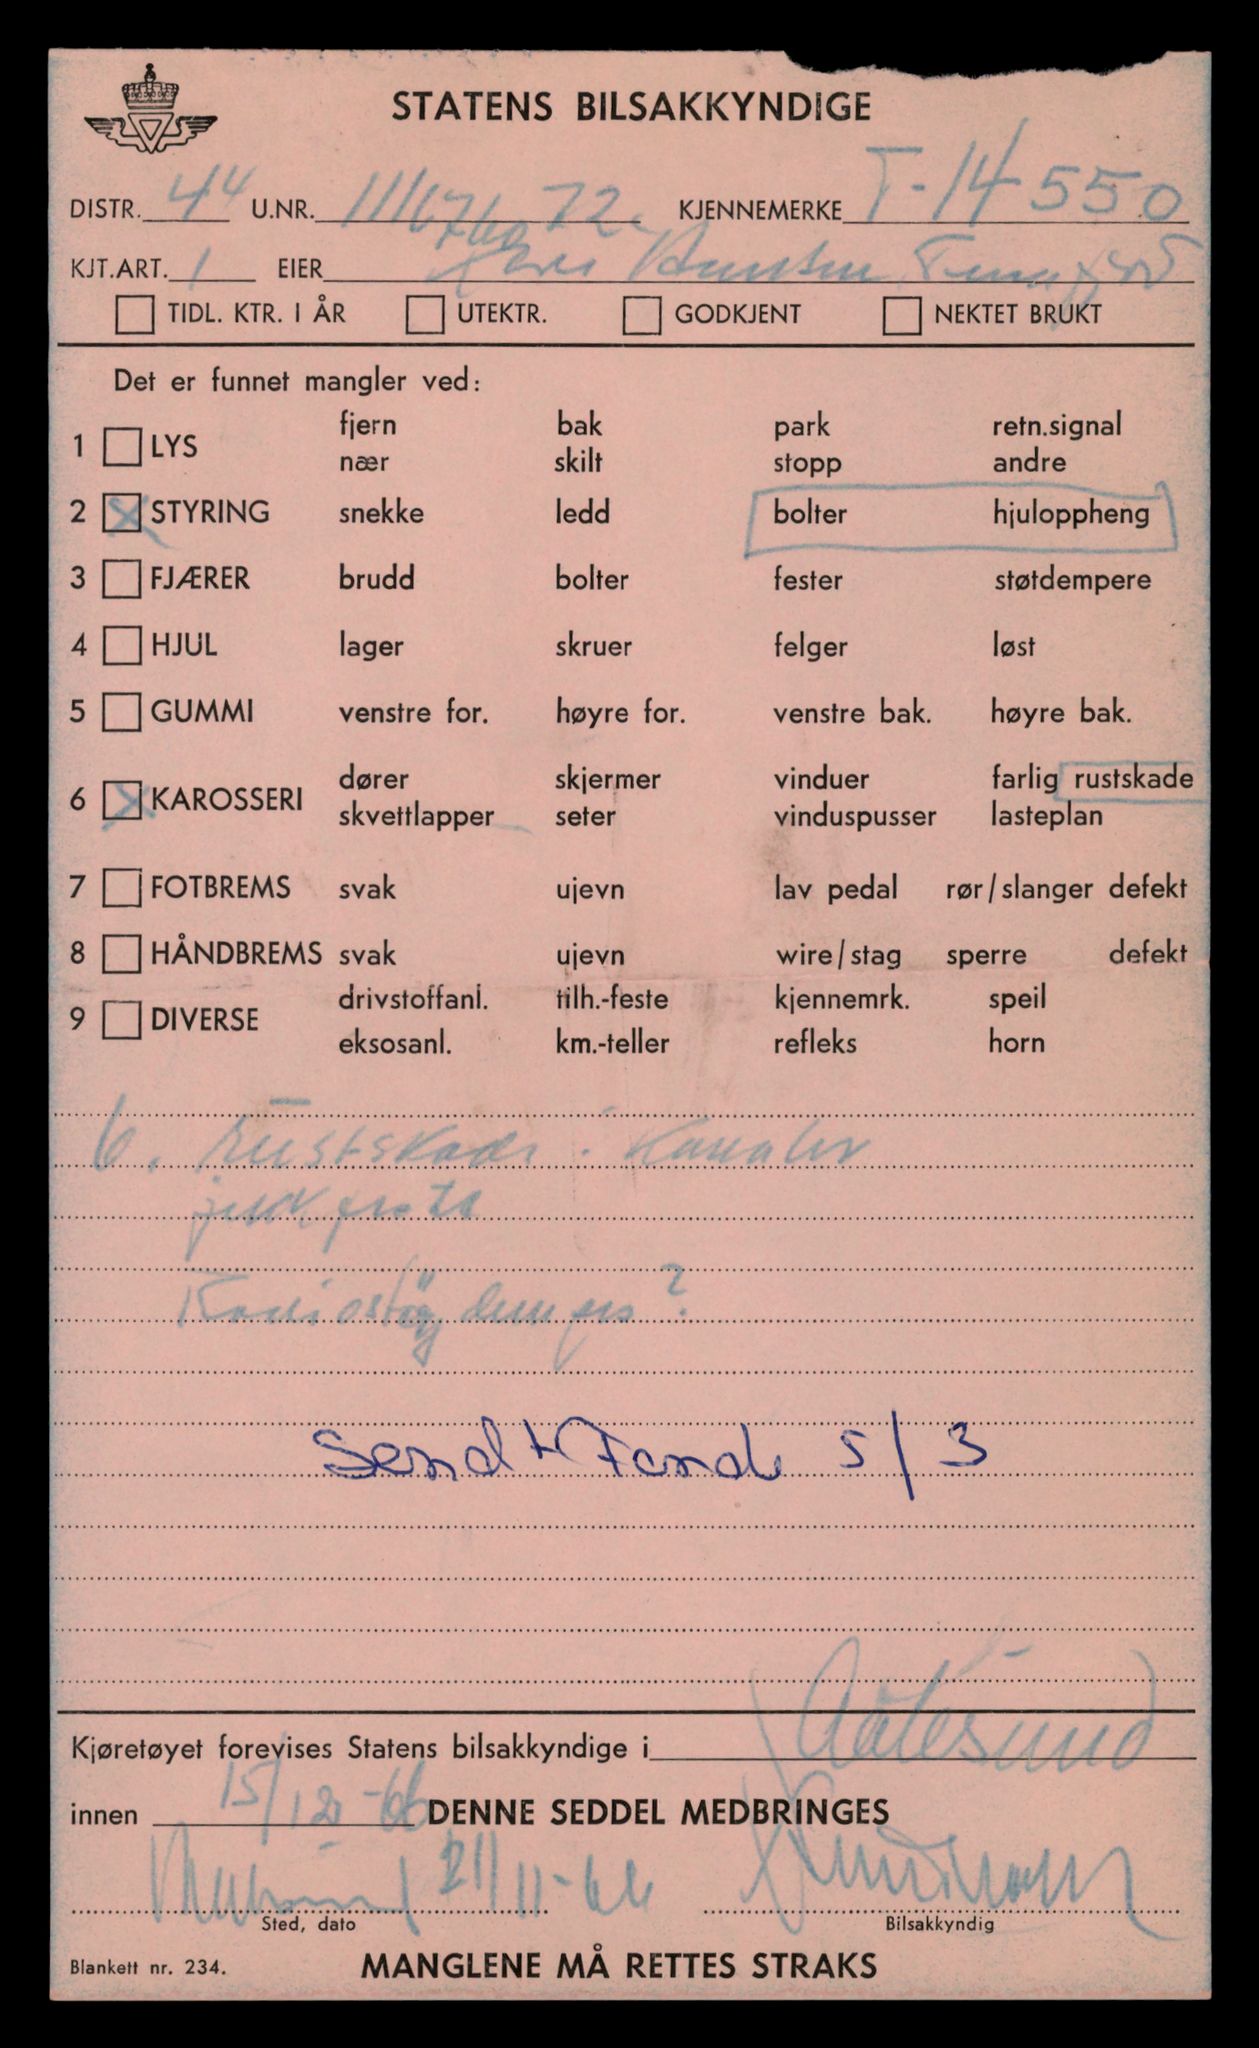 STATENS BILSAKKYNDIGE
DISTR. 44 U.NR. 72 KJENNEMERKE T-14550
KJT.ART. 1 EIER
TIDL. KTR. I ÅR UTEKTR. GODKJENT NEKTET BRUKT
Det er funnet mangler ved:
1 LYS fjern bak park retn.signal
nær skilt stopp andre
2 STYRING snekke ledd bolter hjuloppheng
3 FJÆRER brudd bolter fester støtdempere
4 HJUL lager skruer felger løst
5 GUMMI venstre for. høyre for. venstre bak. høyre bak.
6 KAROSSERI dører skjermer vinduer farlig rustskade
skvettlapper seter vinduspusser lasteplan
7 FOTBREMS svak ujevn lav pedal rør/slanger defekt
8 HÅNDBREMS svak ujevn wire/stag sperre defekt
9 DIVERSE drivstoffanl. tilh.-feste kjennemrk. speil
eksosanl. km.-teller refleks horn
6. Rustskade i kanaler
Sendt 5/3
Kjøretøyet forevises Statens bilsakkyndige i Aalesund
innen 15/12-66 DENNE SEDDEL MEDBRINGES
21/11-66
Sted, dato Bilsakkyndig
Blankett nr. 234. MANGLENE MÅ RETTES STRAKS